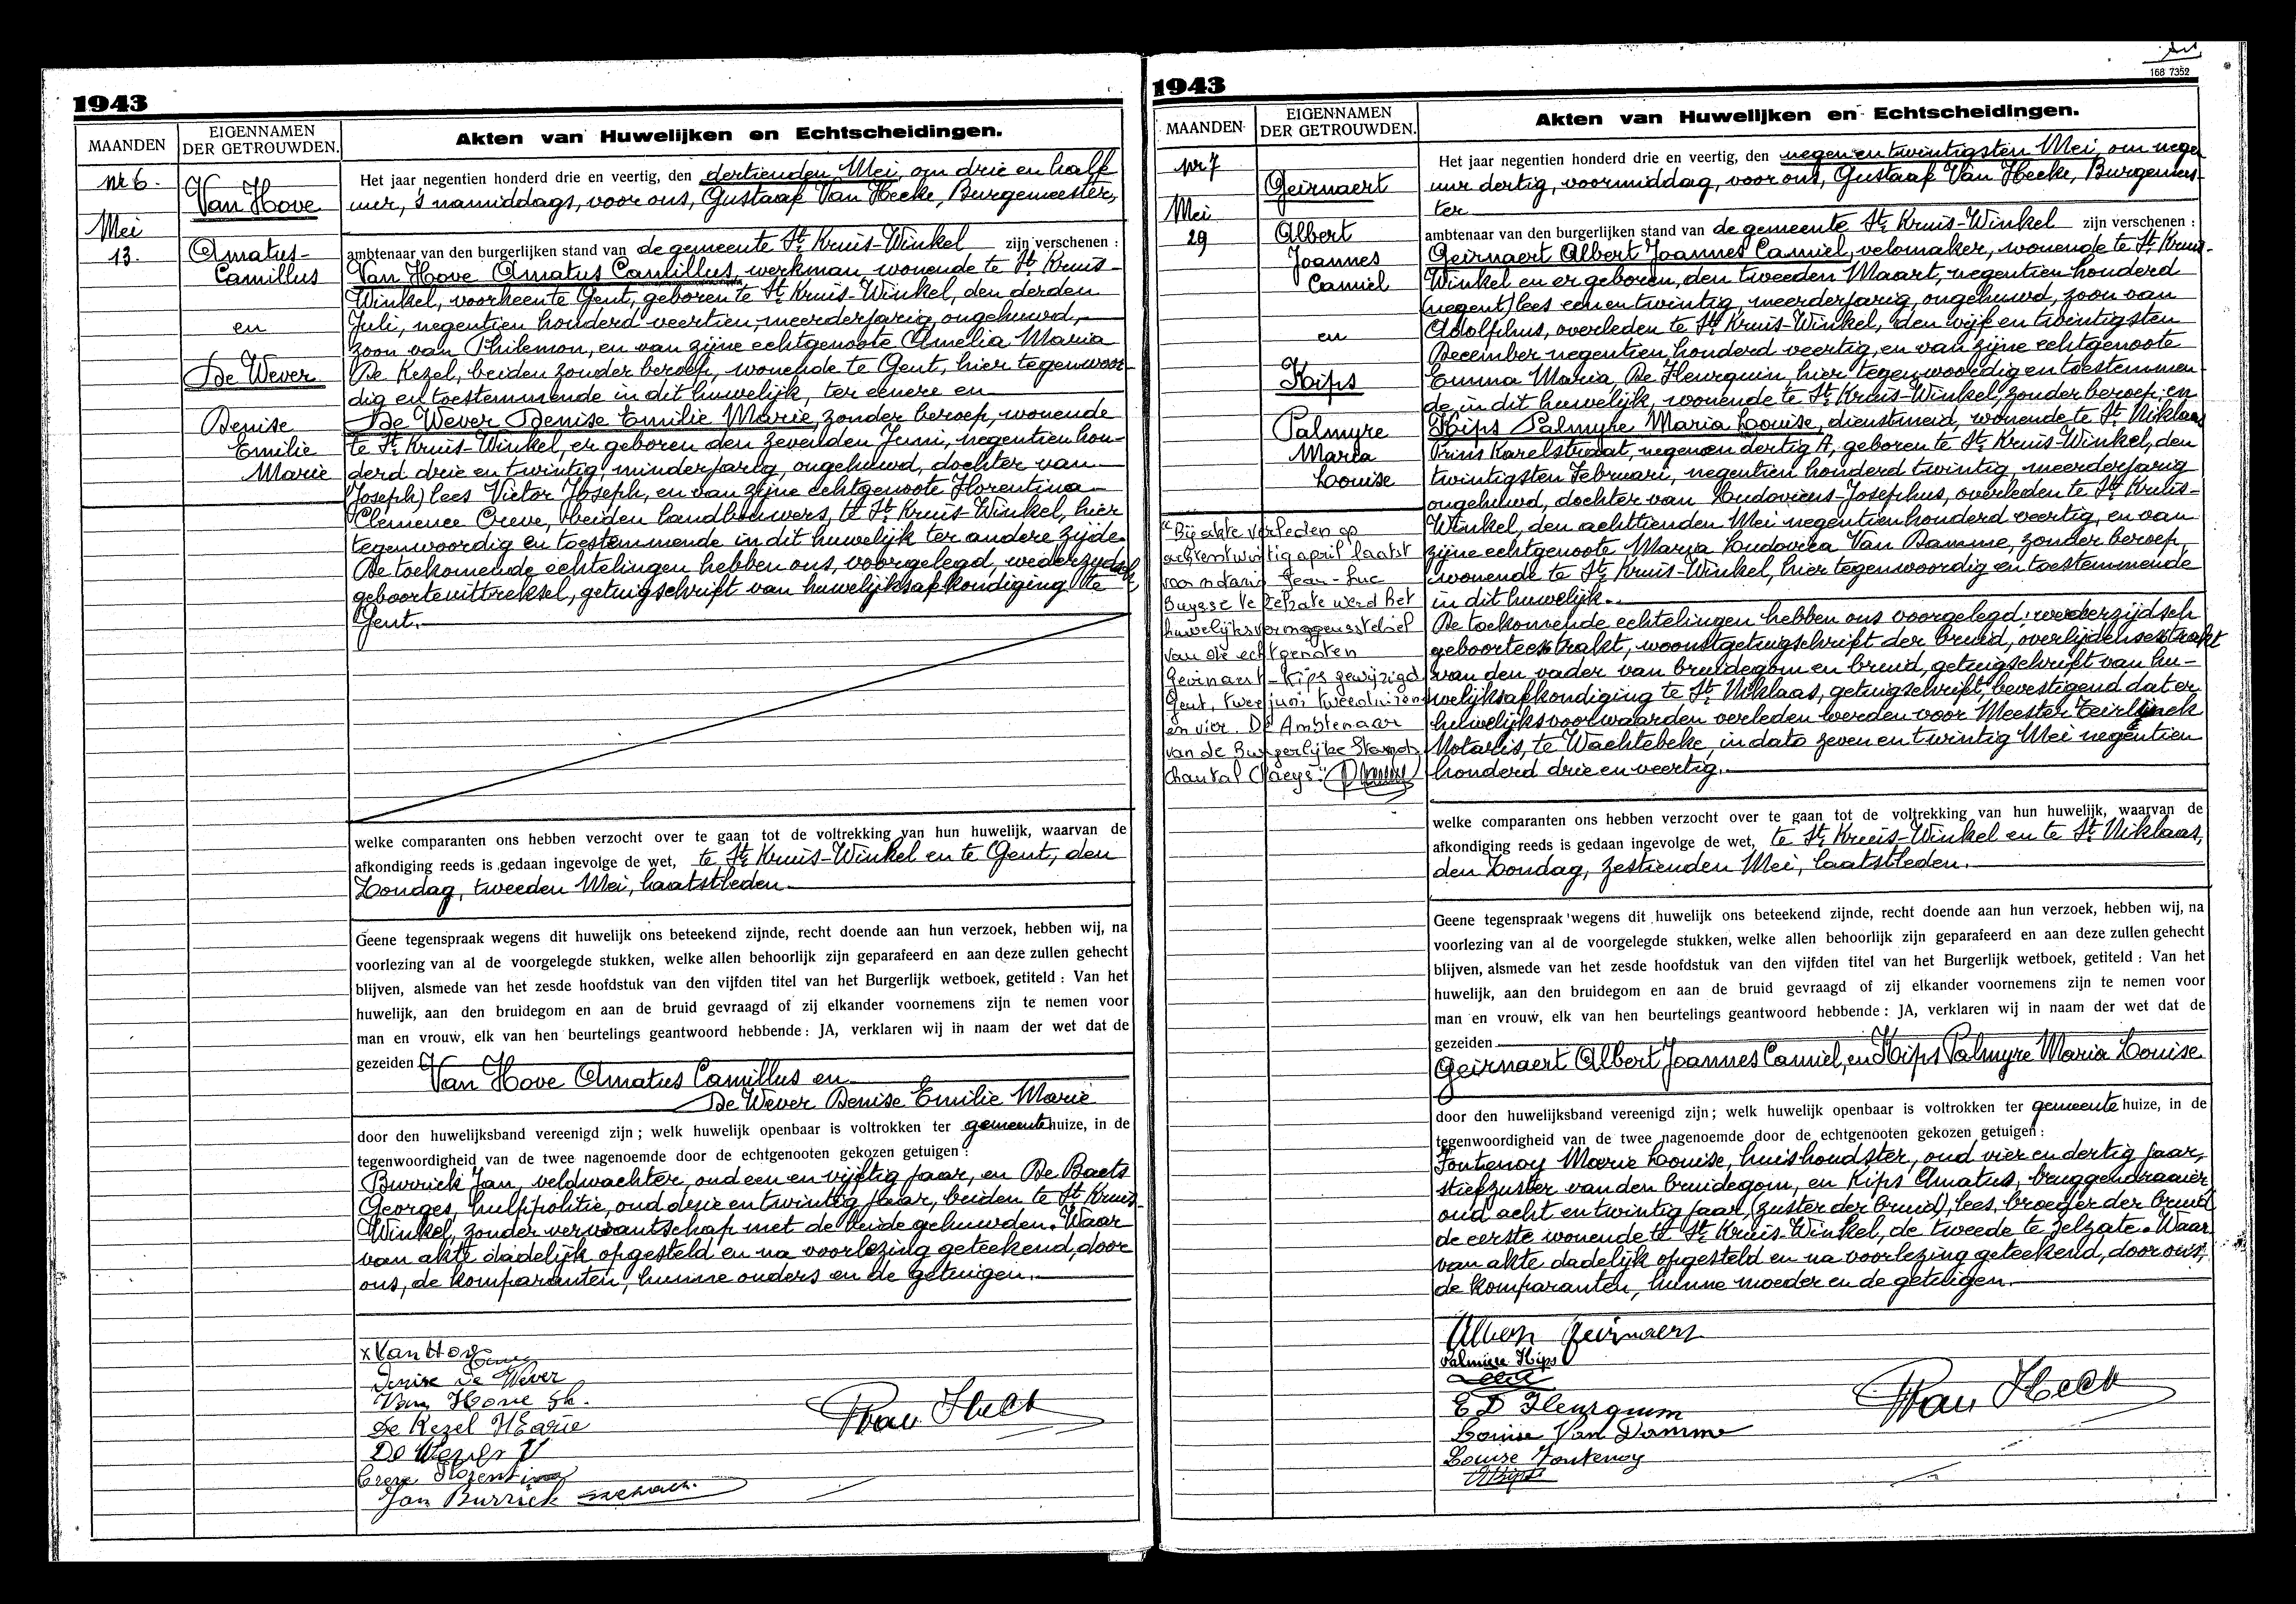 1943
MAANDEN
EIGENNAMEN
DER GETROUWDEN.
Akten van Huwelijken en Echtscheidingen.
Nr 6.
Mei
13.
Van Hove
Amatus-
Camillus
en
De Wever
Denise
Emilie
Marie
Het jaar negentien honderd drie en veertig, den dertienden Mei, om drie en half
uur, 's namiddags, voor ons, Gustaaf Van Hecke, Burgemeester,
ambtenaar van den burgerlijken stand van de gemeente St. Kruis-Winkel zijn verschenen :
Van Hove Amatus Camillus, werkman, wonende te St. Kruis-
Winkel, voorheente Gent, geboren te St. Kruis-Winkel, den derden
Juli, negentien honderd veertien, meerderjarig, ongehuwd,
zoon van Philemon, en van zijne echtgenoote Amelia Maria
De Kezel, beiden zonder beroep, wonende te Gent, hier tegenwoor-
dig en toestemmende in dit huwelijk, ter eenere en
De Wever Denise Emilie Marie, zonder beroep, wonende
te St. Kruis-Winkel, er geboren den zevenden Juni, negentien hon-
derd drie en twintig, minderjarig, ongehuwd, dochter van
(Joseph) lees Victor Joseph, en van zijne echtgenoote Florentina
Clemence Creve, beiden landbouwers, te St. Kruis-Winkel, hier
tegenwoordig en toestemmende in dit huwelijk ter andere zijde.
De toekomende echtelingen hebben ons, voorgelegd, wederzijdsch
geboorteuittreksel, getuigschrift van huwelijksafkondiging te
Gent.
welke comparanten ons hebben verzocht over te gaan tot de voltrekking van hun huwelijk, waarvan de
afkondiging reeds is gedaan ingevolge de wet, te St. Kruis-Winkel en te Gent, den
Zondag, tweeden Mei, laatstleden.
Geene tegenspraak wegens dit huwelijk ons beteekend zijnde, recht doende aan hun verzoek, hebben wij, na
voorlezing van al de voorgelegde stukken, welke allen behoorlijk zijn geparafeerd en aan deze zullen gehecht
blijven, alsmede van het zesde hoofdstuk van den vijfden titel van het Burgerlijk wetboek, getiteld : Van het
huwelijk, aan den bruidegom en aan de bruid gevraagd of zij elkander voornemens zijn te nemen voor
man en vrouw, elk van hen beurtelings geantwoord hebbende : JA, verklaren wij in naam der wet dat de
gezeiden
Van Hove Amatus Camillus en
De Wever Denise Emilie Marie
door den huwelijksband vereenigd zijn ; welk huwelijk openbaar is voltrokken ter gemeentehuize, in de
tegenwoordigheid van de twee nagenoemde door de echtgenooten gekozen getuigen :
Burrick Jan, veldwachter, oud een en vijftig jaar, en De Baets
Georges, hulppolitie, oud drie en twintig jaar, beiden te St. Kruis-
Winkel, zonder verwantschap met de beide gehuwden. Waar
van akte dadelijk opgesteld en na voorlezing geteekend, door
ons, de komparanten, hunne ouders en de getuigen.
x Van Hove
Denise De Wever
Van Hove Ph.
De Kezel Marie
De Wever V
Creve Florentina
Jan Burrick
Van Heck
1943
168 7352
MAANDEN
EIGENNAMEN
DER GETROUWDEN.
Akten van Huwelijken en Echtscheidingen.
Nr 7
Mei
29
Geirnaert
Albert
Joannes
Camiel
en
Kips
Palmyre
Maria
Louise
"Bij akte verleden op
achtentwintig april laatst
voor notaris Jean-Luc
Buysse te Zelzate werd het
huwelijksvermogensstelsel
van de echtgenoten
Geirnaert-Kips gewijzigd
Gent, twee juni tweeduizend
en vier. De Ambtenaar
van de Burgerlijke Stand
Chantal Claeys."
Het jaar negentien honderd drie en veertig, den negen en twintigsten Mei, om negen
uur dertig, voormiddag, voor ons, Gustaaf Van Hecke, Burgemees-
ter
ambtenaar van den burgerlijken stand van de gemeente St. Kruis-Winkel zijn verschenen :
Geirnaert Albert Joannes Camiel, velomaker, wonende te St. Kruis-
Winkel en er geboren, den tweeden Maart, negentien honderd
(negent) lees een en twintig, meerderjarig, ongehuwd, zoon van
Adolphus, overleden te St. Kruis-Winkel, den vijf en twintigsten
December negentien honderd veertig, en van zijne echtgenoote
Emma Maria De Fleurquin, hier tegenwoordig en toestemmen
de in dit huwelijk, wonende te St. Kruis-Winkel, zonder beroep, en
Kips Palmyre Maria Louise, dienstmeid, wonende te St. Niklaas
Prins Karelstraat, negen en dertig A, geboren te St. Kruis-Winkel, den
twintigsten Februari, negentien honderd twintig, meerderjarig
ongehuwd, dochter van Ludovicus-Josephus, overleden te St. Kruis-
Winkel, den achttienden Mei negentien honderd veertig, en van
zijne echtgenoote Maria Ludovica Van Damme, zonder beroep,
wonende te St. Kruis-Winkel, hier tegenwoordig en toestemmende
in dit huwelijk.
De toekomende echtelingen hebben ons voorgelegd : wederzijdsch
geboorteextrakt, woonstgetuigschrift der bruid, overlijdensextrakt
van den vader van bruidegom en bruid, getuigschrift van hu-
welijksafkondiging te St. Niklaas, getuigschrift, bevestigend dat er
huwelijksvoorwaarden verleden werden voor Meester Teirlinck
Notaris, te Wachtebeke, in dato zeven en twintig Mei negentien
honderd drie en veertig.
welke comparanten ons hebben verzocht over te gaan tot de voltrekking van hun huwelijk, waarvan de
afkondiging reeds is gedaan ingevolge de wet, te St. Kruis-Winkel en te St. Niklaas,
den Zondag, zestienden Mei, laatstleden.
Geene tegenspraak wegens dit huwelijk ons beteekend zijnde, recht doende aan hun verzoek, hebben wij, na
voorlezing van al de voorgelegde stukken, welke allen behoorlijk zijn geparafeerd en aan deze zullen gehecht
blijven, alsmede van het zesde hoofdstuk van den vijfden titel van het Burgerlijk wetboek, getiteld : Van het
huwelijk, aan den bruidegom en aan de bruid gevraagd of zij elkander voornemens zijn te nemen voor
man en vrouw, elk van hen beurtelings geantwoord hebbende : JA, verklaren wij in naam der wet dat de
gezeiden
Geirnaert Albert Joannes Camiel, en Kips Palmyre Maria Louise
door den huwelijksband vereenigd zijn ; welk huwelijk openbaar is voltrokken ter gemeentehuize, in de
tegenwoordigheid van de twee nagenoemde door de echtgenooten gekozen getuigen :
Fontenoy Marie Louise, huishoudster, oud vier en dertig jaar,
stiefzuster van den bruidegom, en Kips Amatus, bruggendraaier
oud acht en twintig jaar, (zuster der bruid) lees, broeder der bruid
de eerste wonende te St. Kruis-Winkel, de tweede te Zelzate. Waar
van akte dadelijk opgesteld en na voorlezing geteekend, door ons,
de komparanten, hunne moeder en de getuigen.
Albert Geirnaert
Palmire Kips
E D Fleurquin
Louise Van Damme
Louise Fontenoy
AKips
Van Heck